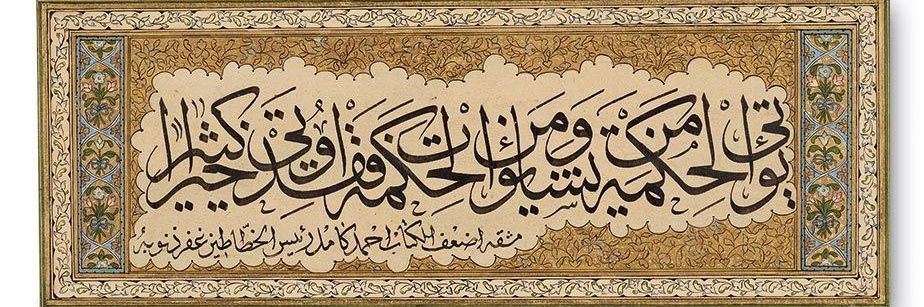 يؤتى الحكمة من يشاء ومن يؤت الحكمة فقد اوتى خيرا كثيرا
مشقه اضعف الكتاب احمد كامل رئيس الخطاطين غفر ذنوبه